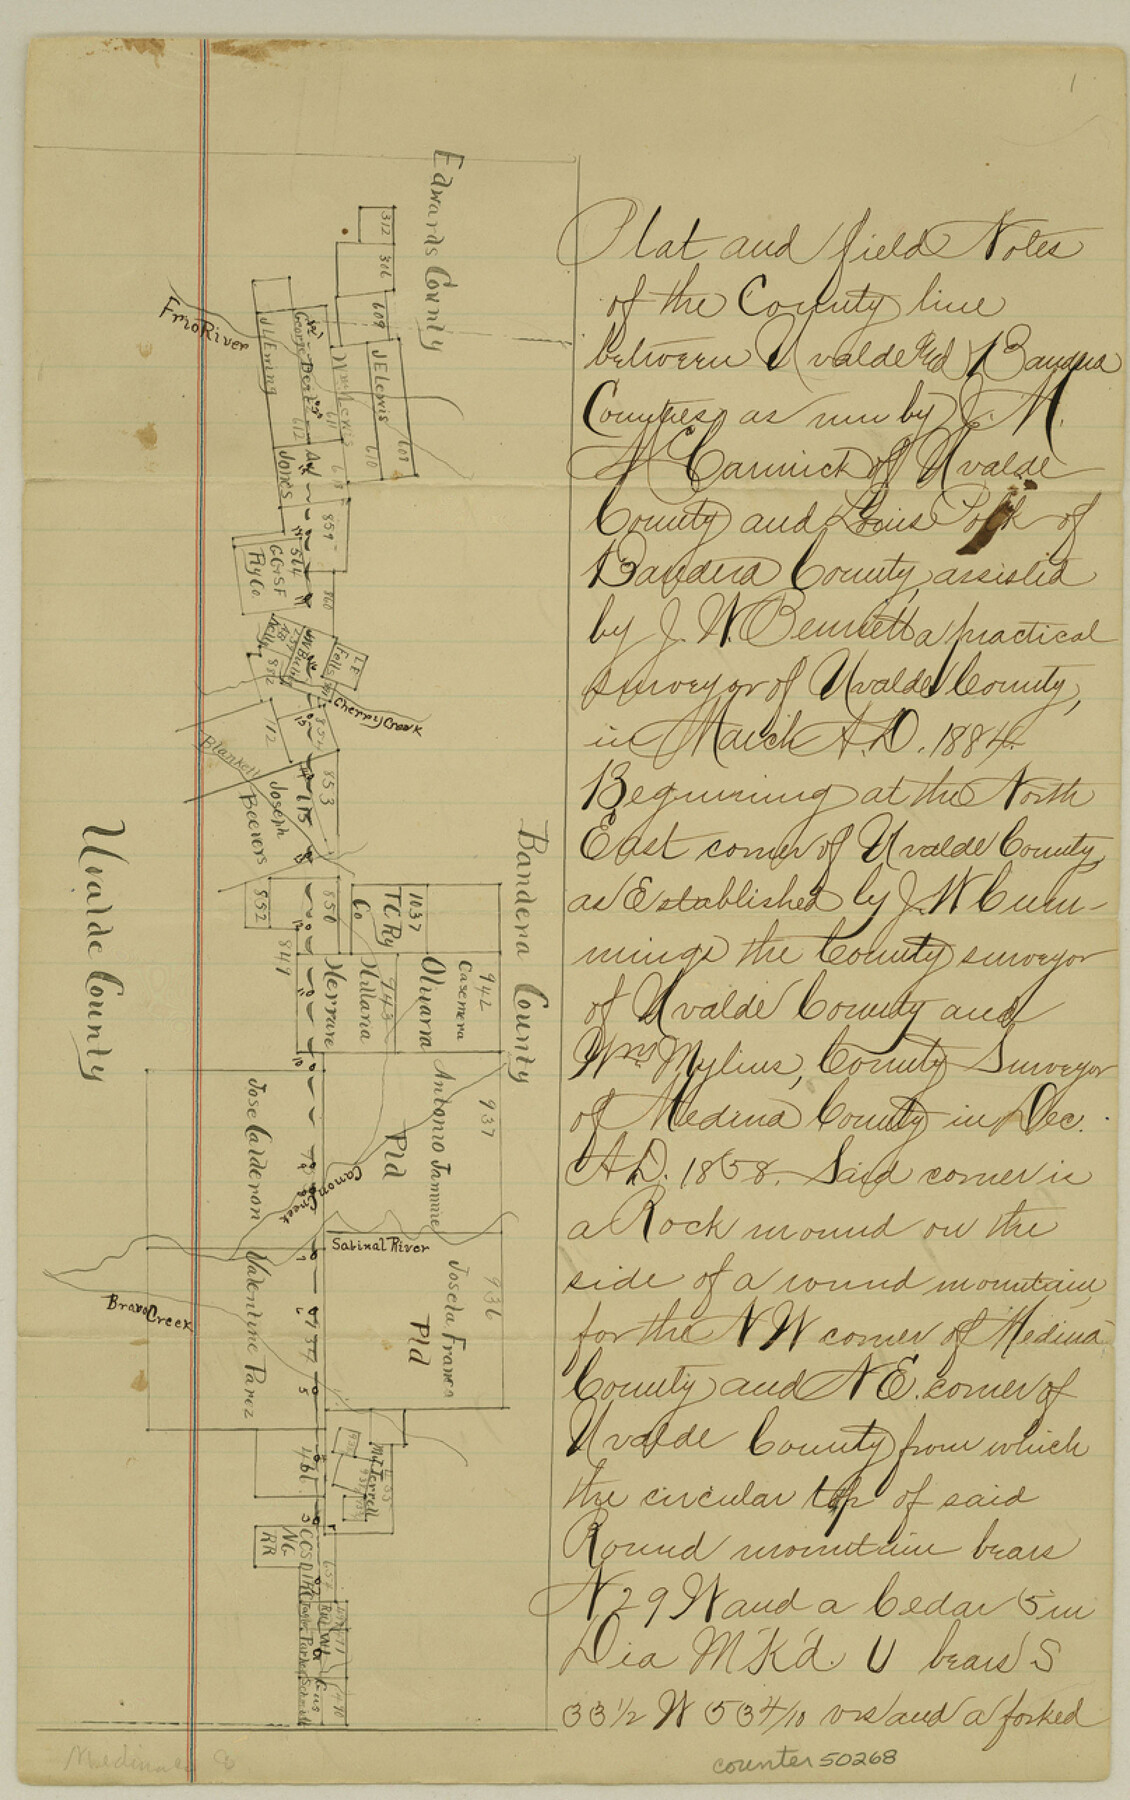 1
Plat and field Notes
of the County line
between Uvalde and Bandera
Counties as run by J. M.
McCormick of Uvalde
County and Louis Polk of
Bandera County, assisted
by J. W. Bennett a practical
surveyor of Uvalde County,
in March A.D. 1884.
Beginning at the North
East corner of Uvalde County,
as Established by J. W Cum-
mings the County surveyor
of Uvalde County and
Wm Mylius, County Surveyor
of Medina County in Dec.
A.D. 1858. Said corner is
a Rock mound on the
side of a round mountain,
for the N W corner of Medina
County and N E. corner of
Uvalde County from which
the circular top of said
Round mountain bears
N. 29 W and a Cedar 5 in
Dia M'K'd. U bears S
33 1/2 W 53 4/10 vrs and a forked
counter 50268
Edwards County
Bandera County
Uvalde County
Medina Co
Frio River
Cherry Creek
Blanket
Canon Creek
Sabinal River
Bravo Creek
312
366
609
J E Lewis
609
610
Wm Lewis
611
George Dertz
612
J L Eming
A W
Jones
859
860
564
GC & SF
Ry Co.
L E
Fells
882
712
854
853
175
Joseph
Beevers
892
850
849
1037
T C Ry
Co
942
Casemera
Olivarra
943
Hillaria
Herrare
937
Antonio Jamme
Pld
Jose Calderon
936
Josefa Franco
Pld
34
Valentine Parez
466
M A Terrell
NG
RR
CCSD
657
Gus
470
Schmidt